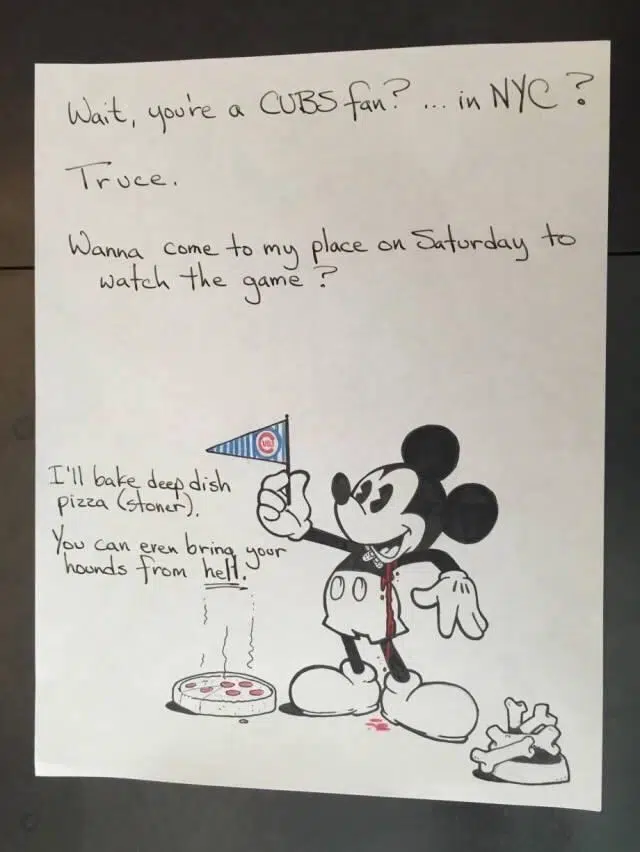 Wait, you're a CUBS fan? ... in NYC?
Truce.
Wanna come to my place on Saturday to
watch the game?
I'll bake deep dish
pizza (stoner).
You can even bring your
hounds from hell.
CUBS